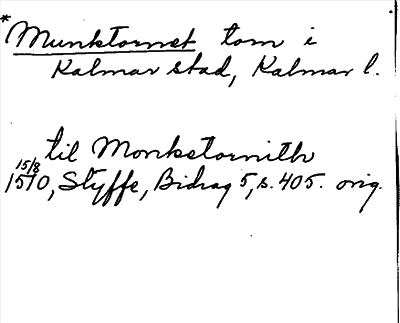 * Munktornet torn i
Kalmar stad, Kalmar l.
til Monkstornith
15/8
1510, Styffe, Bidrag 5, s. 405. orig.